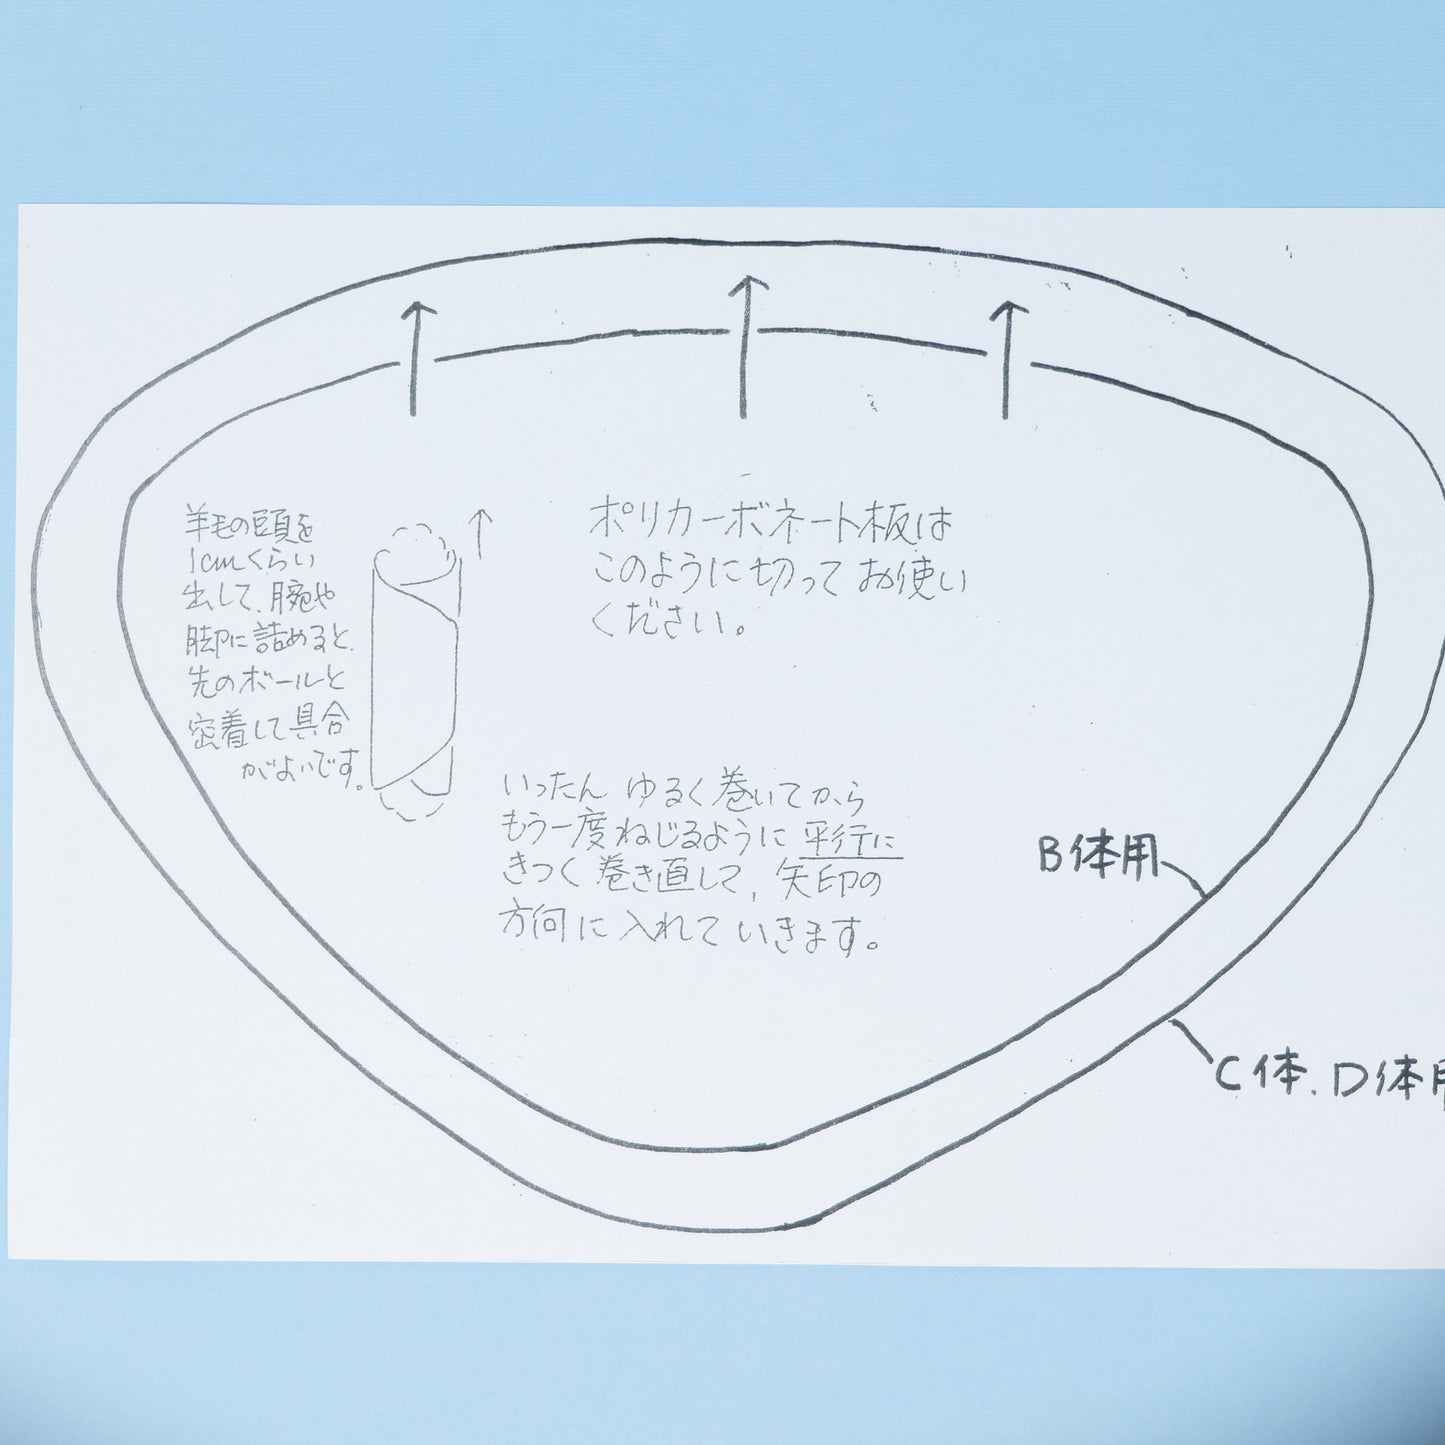 羊毛の頭を
1cmくらい
出して、腕や
脚に詰めると、
先のボールと
密着して具合
がよいです。
ポリカーボネート板は
このように切ってお使い
ください。
いったん ゆるく巻いてから
もう一度ねじるように平行に
きつく巻き直して、矢印の
方向に入れていきます。
B体用
C体、D体用